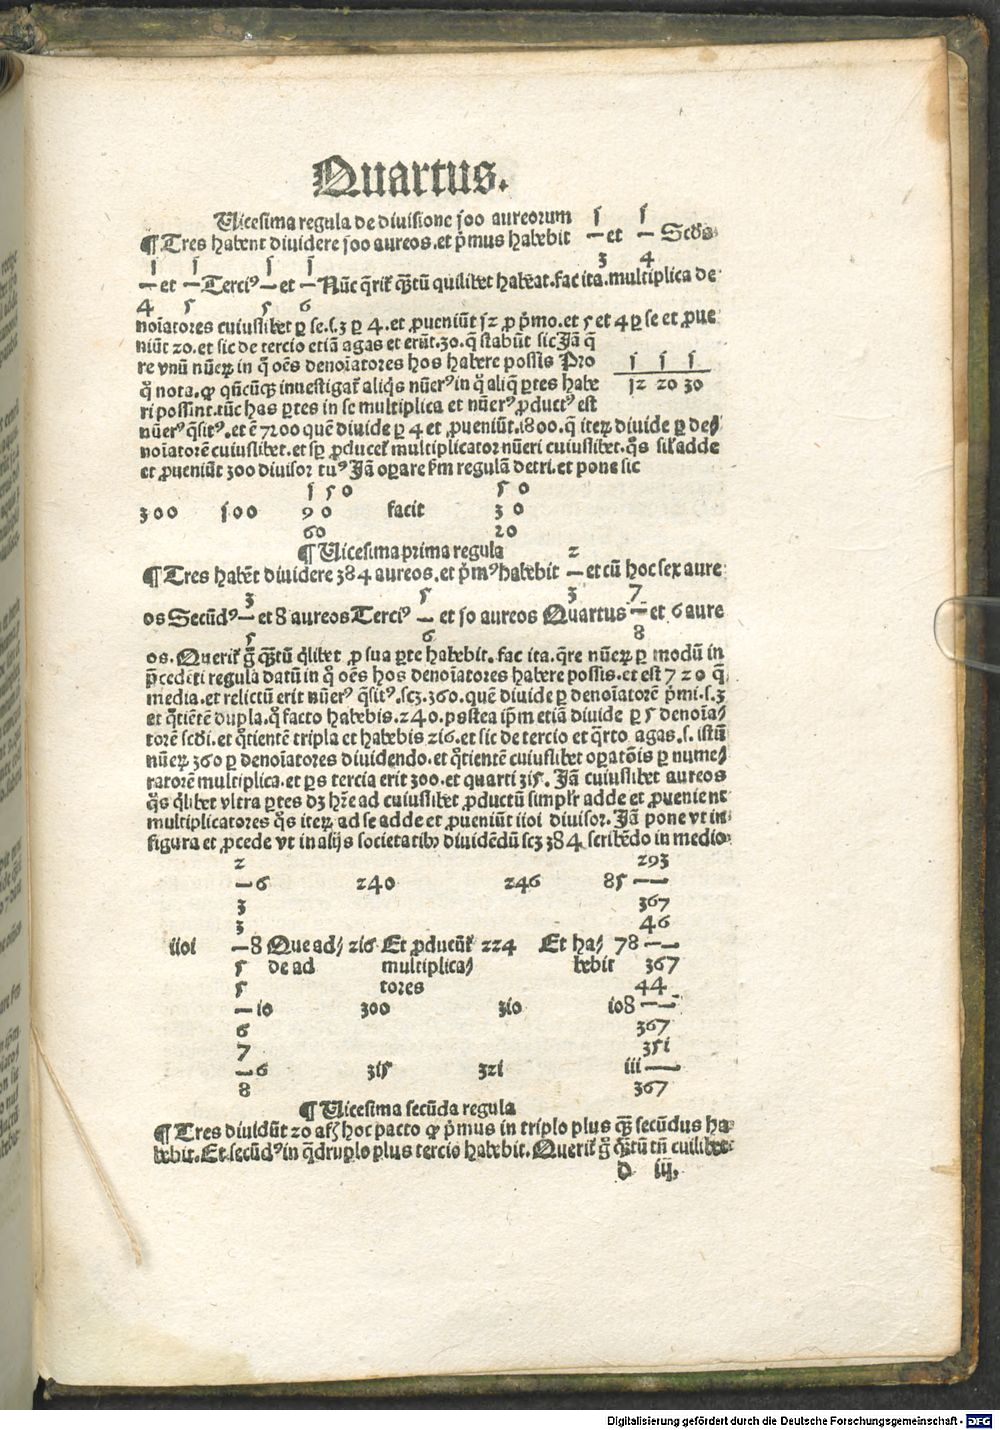 Quartus.
Uicesima regula de diuisione ſoo aureorum ſ ſ
¶ Tres habent diuidere ſoo aureos.et p̃mus habebit — et — Scd̃s
ſ ſ ſ ſ 3 4
— et — Terciꝰ — et — Nũc q̃rit᷑ q̃tũ quilibet habeat.fac ita.multiplica de
4 5 5 6
noĩatores cuiuslibet ꝑ se.s.3 ꝑ 4.et ꝓueniũt ſ2 ꝓ p̃mo.et 5 et 4 ꝑ se et ꝓue
niũt 20.et sic de tercio etiã agas et erũt.30.q̃ stabũt sic Jã q̃
re vnũ nũeꝝ in q̊ oẽs denoĩatores hos habere possis Pro ſ ſ ſ
q̊ nota.ꝙ qñcũqꝫ inuestigat᷑ aliq̃s nũerꝰ in q̊ aliq̃ ꝑtes habe ſ2 20 30
ri possint.tũc has ꝑtes in se multiplica et nũerꝰ ꝓductꝰ est
nũerꝰ q̃sitꝰ.et ẽ 7200 quẽ diuide ꝑ 4 et ꝓueniũt.ſ800.q̃ iteꝝ diuide ꝑ de⸗
noĩatorẽ cuiuslibet.et sꝑ ꝓducet᷑ multiplicator nũeri cuiuslibet.q̃s sil᷑ adde
et ꝓueniũt 300 diuisor tuꝰ Jã oꝑare ẜm regulã detri.et pone sic
ſ 5 0 5 0
300 ſ00 9 0 facit 3 0
60 20
¶ Uicesima prima regula 2
¶ Tres habẽt diuidere 384 aureos.et p̃mꝰ habebit — et cũ hoc sex aure
3 5 3 7
os Secũdꝰ — et 8 aureos Terciꝰ — et ſo aureos Quartus — et 6 aure
5 6 8
os.Querit᷑ g̊ q̃tũ q̃libet ꝓ sua ꝑte habebit.fac ita.q̃re nũeꝝ ꝑ modũ in
p̃cedẽti regula datũ in q̊ oẽs hos denoĩatores habere possis.et est 7 2 0 q̃
media.et relictũ erit nũerꝰ q̃sitꝰ.scꝫ.360.quẽ diuide ꝑ denoĩatorẽ p̃mi.s.3
et q̊tiẽtẽ dupla.q̊ facto habebis.240.postea ip̃m etiã diuide ꝑ 5 denoĩa⸗
torẽ scd̃i.et q̊tientẽ tripla et habebis 2ı6.et sic de tercio et q̃rto agas.s.istũ
nũeꝝ 360 ꝑ denoĩatores diuidendo.et q̊tientẽ cuiuslibet oꝑatõis ꝑ nume⸗
ratorẽ multiplica.et ꝑs tercia erit 300.et quarti 3ı5.Jã cuiuslibet aureos
q̃s q̃libet vltra ꝑtes dꝫ hr̃e ad cuiuslibet ꝓductũ simpl᷑r adde et ꝓuenient
multiplicatores q̃s iteꝝ ad se adde et ꝓueniũt ııoı diuisor.Jã pone vt in⸗
figura et ꝓcede vt in alijs societatibꝰ diuidẽdũ scꝫ 384 scribẽdo in medio.
2 293
— 6 240 246 85 —
3 367
3 46
ııoı — 8 Que ad⸗ 2ı6 Et ꝓducũt᷑ 224 Et ha⸗ 78 —
5 de ad multiplica⸗ bebit 367
5 tores 44
— ıo 300 3ıo ıo8 —
6 367
7 35ı
— 6 3ı5 32ı ııı —
8 367
¶ Uicesima secũda regula
¶ Tres diuidũt 20 hoc pacto ꝙ p̃mus in triplo plus q̃ secũdus ha⸗
bebit.Et secũdꝰ in q̃druplo plus tercio habebit.Querit᷑ g̊ q̃tũ tñ cuilibet
d iij,
Digitalisierung gefördert durch die Deutsche Forschungsgemeinschaft - DFG